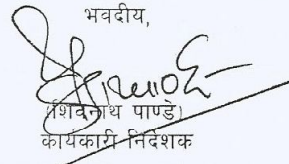 भवदीय,
(शिवनाथ पाण्डे)
कार्यकारी निदेशक